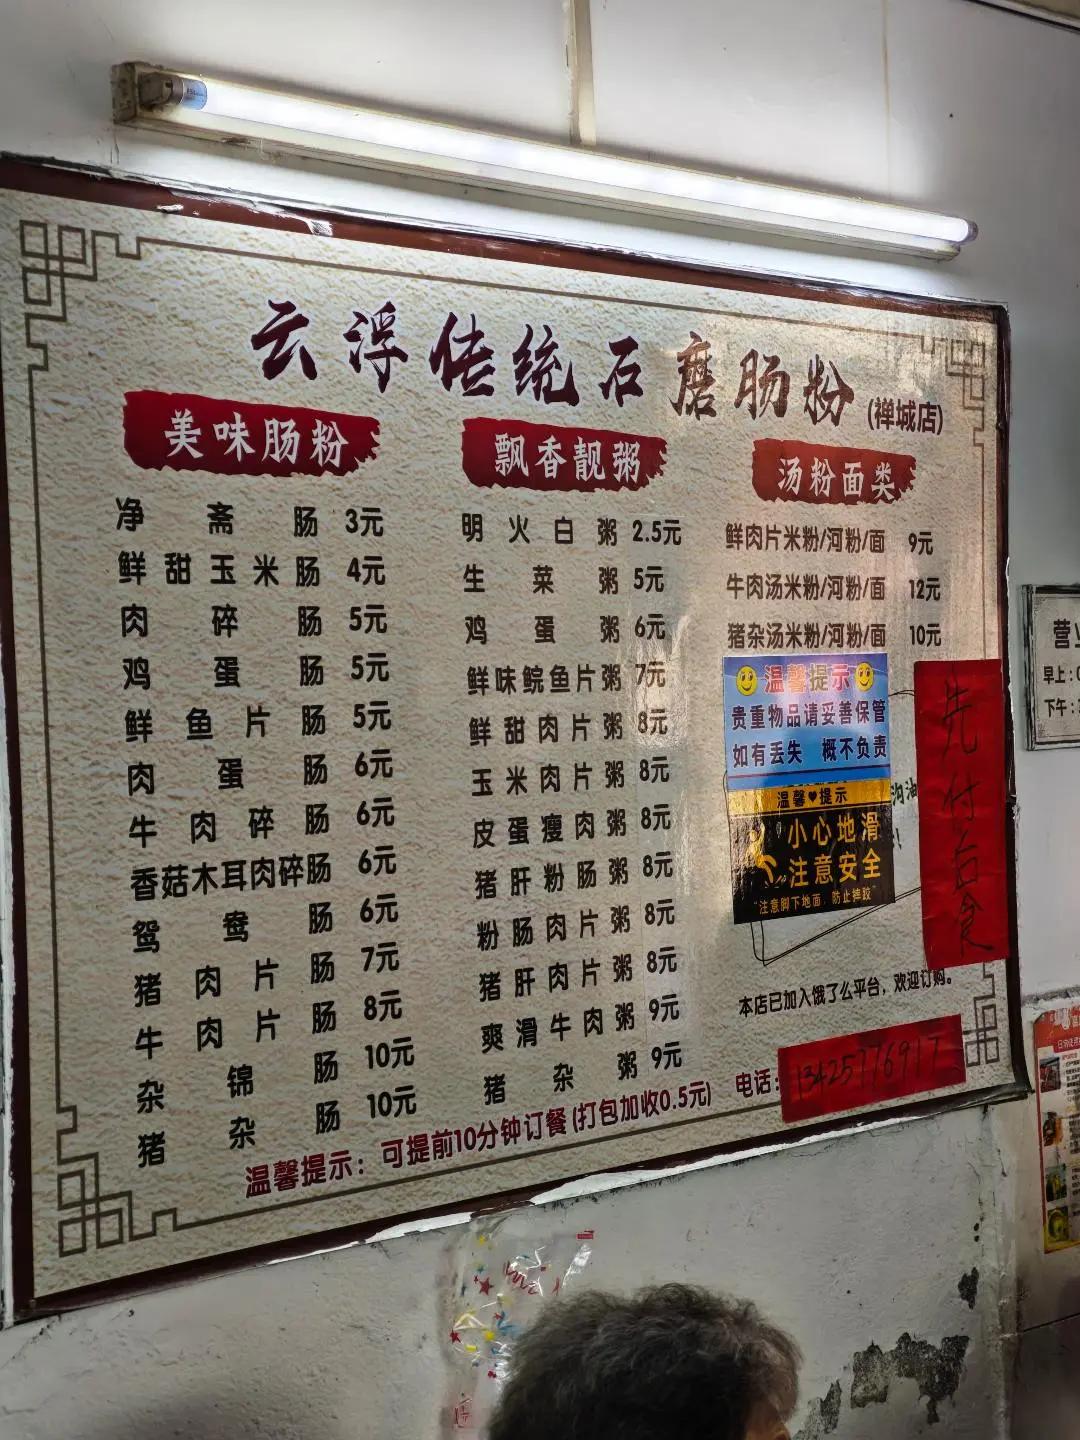 云浮传统石磨肠粉(禅城店)
美味肠粉
净斋肠 3元
鲜甜玉米肠 4元
肉碎肠 5元
鸡蛋肠 5元
鲜鱼片肠 5元
肉蛋肠 6元
牛肉碎肠 6元
香菇木耳肉碎肠 6元
鸳鸯肠 6元
猪肉片肠 7元
牛肉片肠 8元
杂锦肠 10元
猪杂肠 10元
飘香靓粥
明火白粥 2.5元
生菜粥 5元
鸡蛋粥 6元
鲜味鲩鱼片粥 7元
鲜甜肉片粥 8元
玉米肉片粥 8元
皮蛋瘦肉粥 8元
猪肝粉肠粥 8元
粉肠肉片粥 8元
猪肝肉片粥 8元
爽滑牛肉粥 9元
猪杂粥 9元
汤粉面类
鲜肉片米粉/河粉/面 9元
牛肉汤米粉/河粉/面 12元
猪杂汤米粉/河粉/面 10元
温馨提示
贵重物品请妥善保管
如有丢失 概不负责
温馨♥提示
小心地滑
注意安全
"注意脚下地面，防止摔跤"
沟油
先付后食
本店已加入饿了么平台，欢迎订购。
温馨提示：可提前10分钟订餐(打包加收0.5元)
电话：13425776917
营业
早上：0
下午：